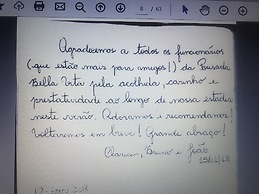 8 / 63
Agradecemos a todos os funcionários
(que estão mais para amigos!) da Pousada
Bella Vista pela acolhida, carinho e
prestatividade ao longo de nossa estadia
neste verão. Adoramos e recomendamos!
Voltaremos em breve! Grande abraço!
Clarice, Bruno e João
15/01/18
2018